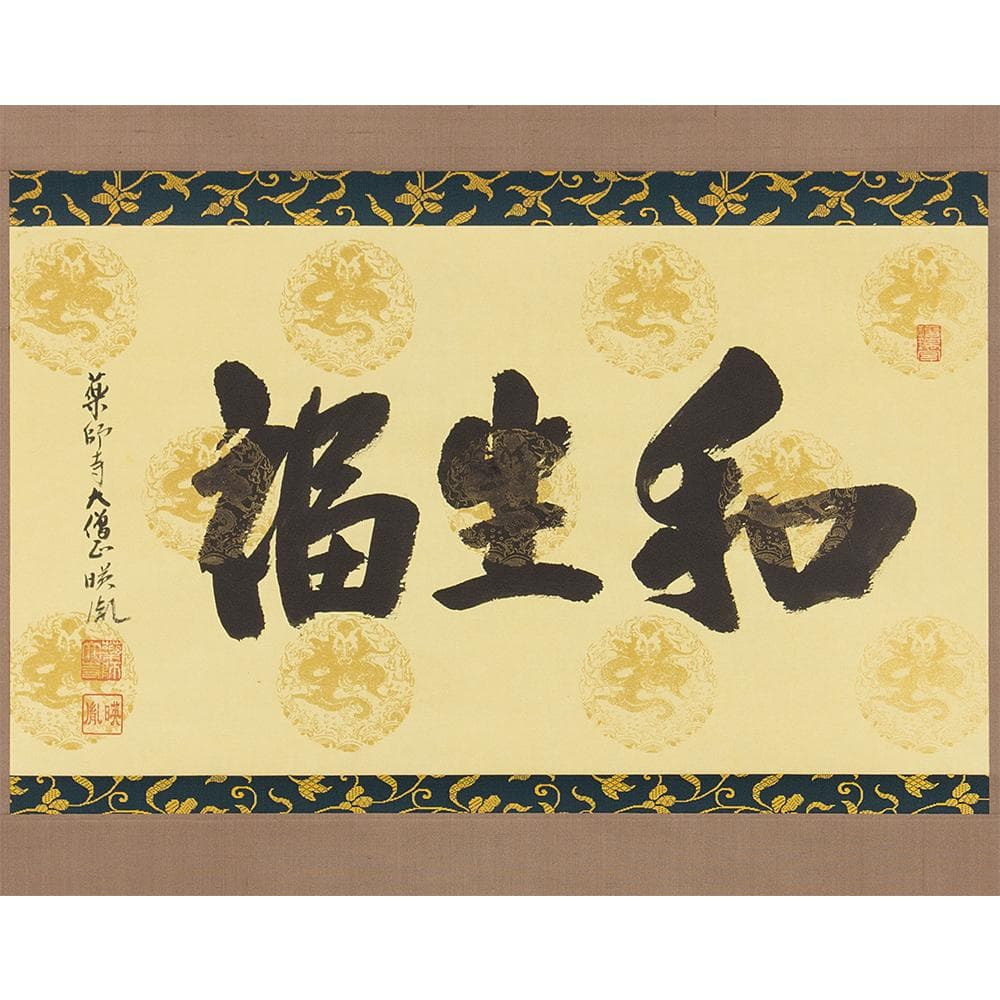 和生福
薬師寺大僧正暎胤
暎胤